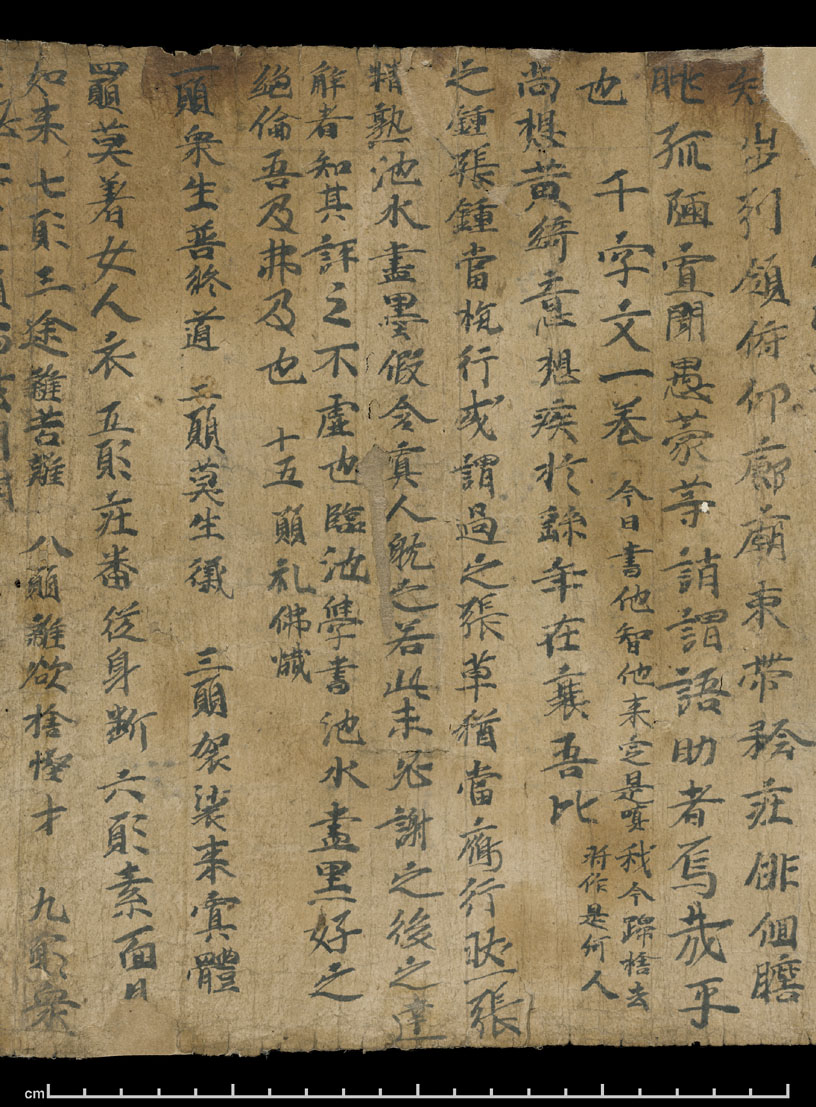 矩步引領俯仰廊廟束帶矜莊俳佪瞻
眺孤陋寡聞愚蒙等誚謂語助者焉哉乎
也 千字文一卷 今日書他智他来是嗔我今歸捨去
将作是何人
尚想黄綺意想疾於繇年在襄吾比
之鍾張鍾當抗行或謂過之張草猶當鴈行然張
精熟池水盡墨假令寡人躭之若此未必謝之後之達
解者知其評之不虚也臨池學書池水盡黒好之
絶倫吾及弗及也 十五願礼佛懴
一願衆生善終道 二願莫生 三願袈裟来寘體
四願莫著女人衣 五願莊番從身断 六願素面日
如来 七願三途離苦難 八願離欲捨慳才 九願衆